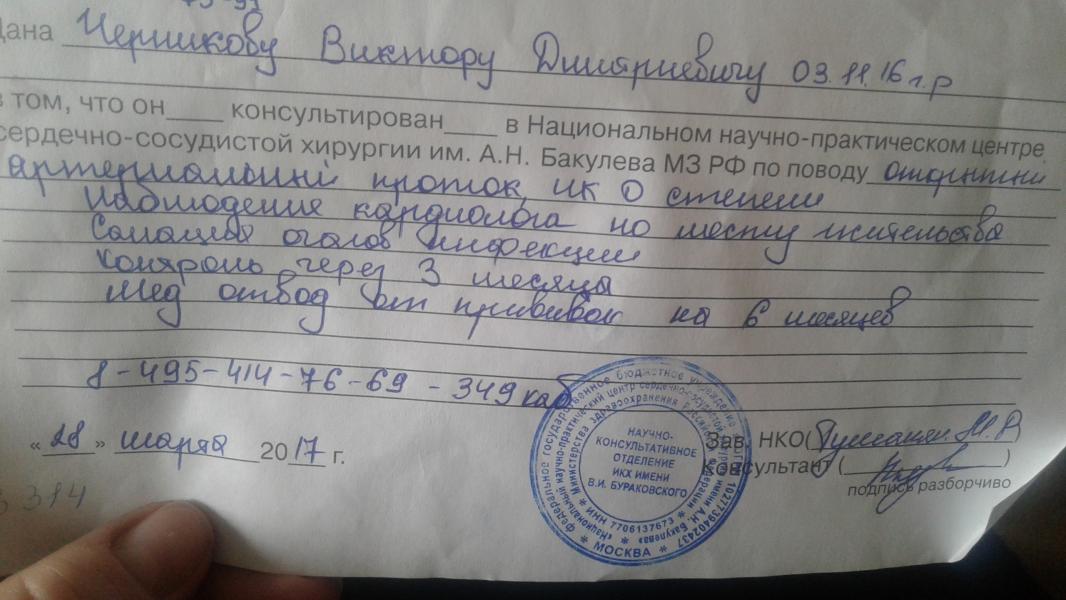 Дана Черникову Виктору Дмитриевичу 03.11.16 г.р
в том, что он____ консультирован____ в Национальном научно-практическом центре
сердечно-сосудистой хирургии им. А.Н. Бакулева МЗ РФ по поводу открытый
артериальный проток, НК 0 степени
Наблюдение кардиолога по месту жительства
Санация очагов инфекции
Контроль через 3 месяца
Мед отвод от прививок на 6 месяцев
8-495-414-76-69 - 349 каб
Зав. НКО( М.Р )
«28» марта 2017 г.
Консультант ( )
подпись разборчиво
314
НАУЧНО-
КОНСУЛЬТАТИВНОЕ
ОТДЕЛЕНИЕ
ИКХ ИМЕНИ
В.И. БУРАКОВСКОГО
Федеральное государственное бюджетное учреждение
Министерства здравоохранения Российской Федерации
ИНН 7706137673
1027739402437
МОСКВА